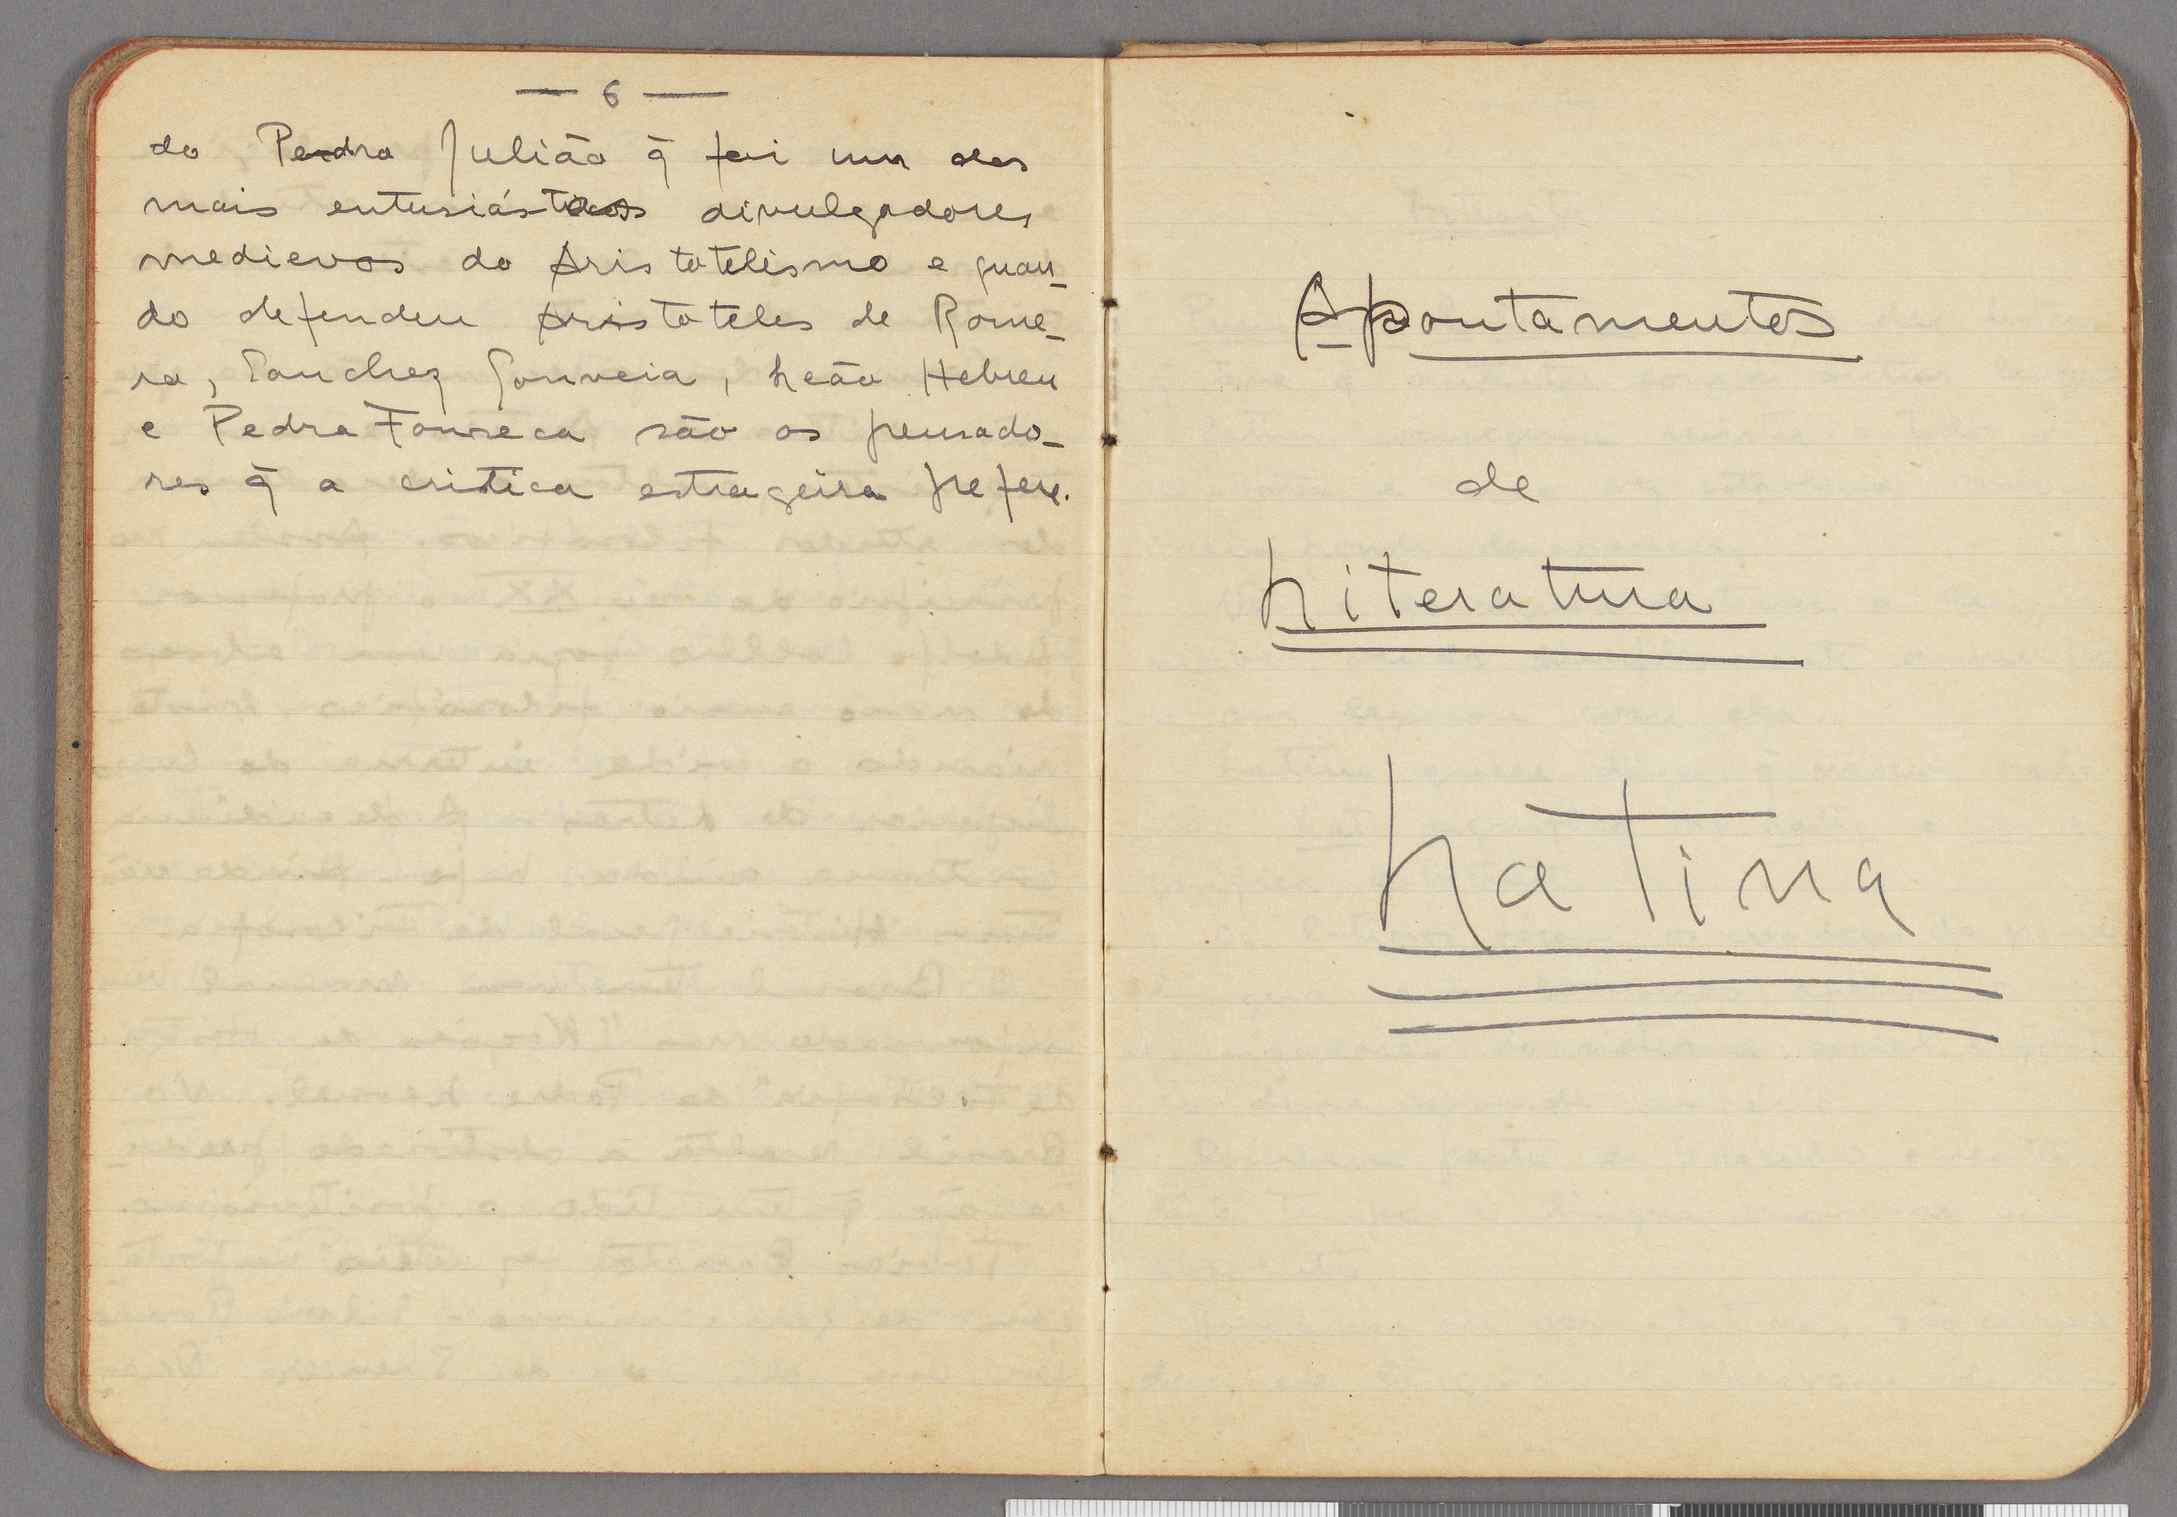 — 6 —
do, Pedro Julião q̃ foi um dos
mais entusiásticos divulgadores
medievos do Aristotelismo e quan-
do defendeu Aristoteles de Rome-
ra, Sanchez Gouveia, Leão Hebreu
e Pedro Fonseca são os pensado-
res q̃ a critica estrageira prefere.
Apontamentos
de
Literatura
Latina